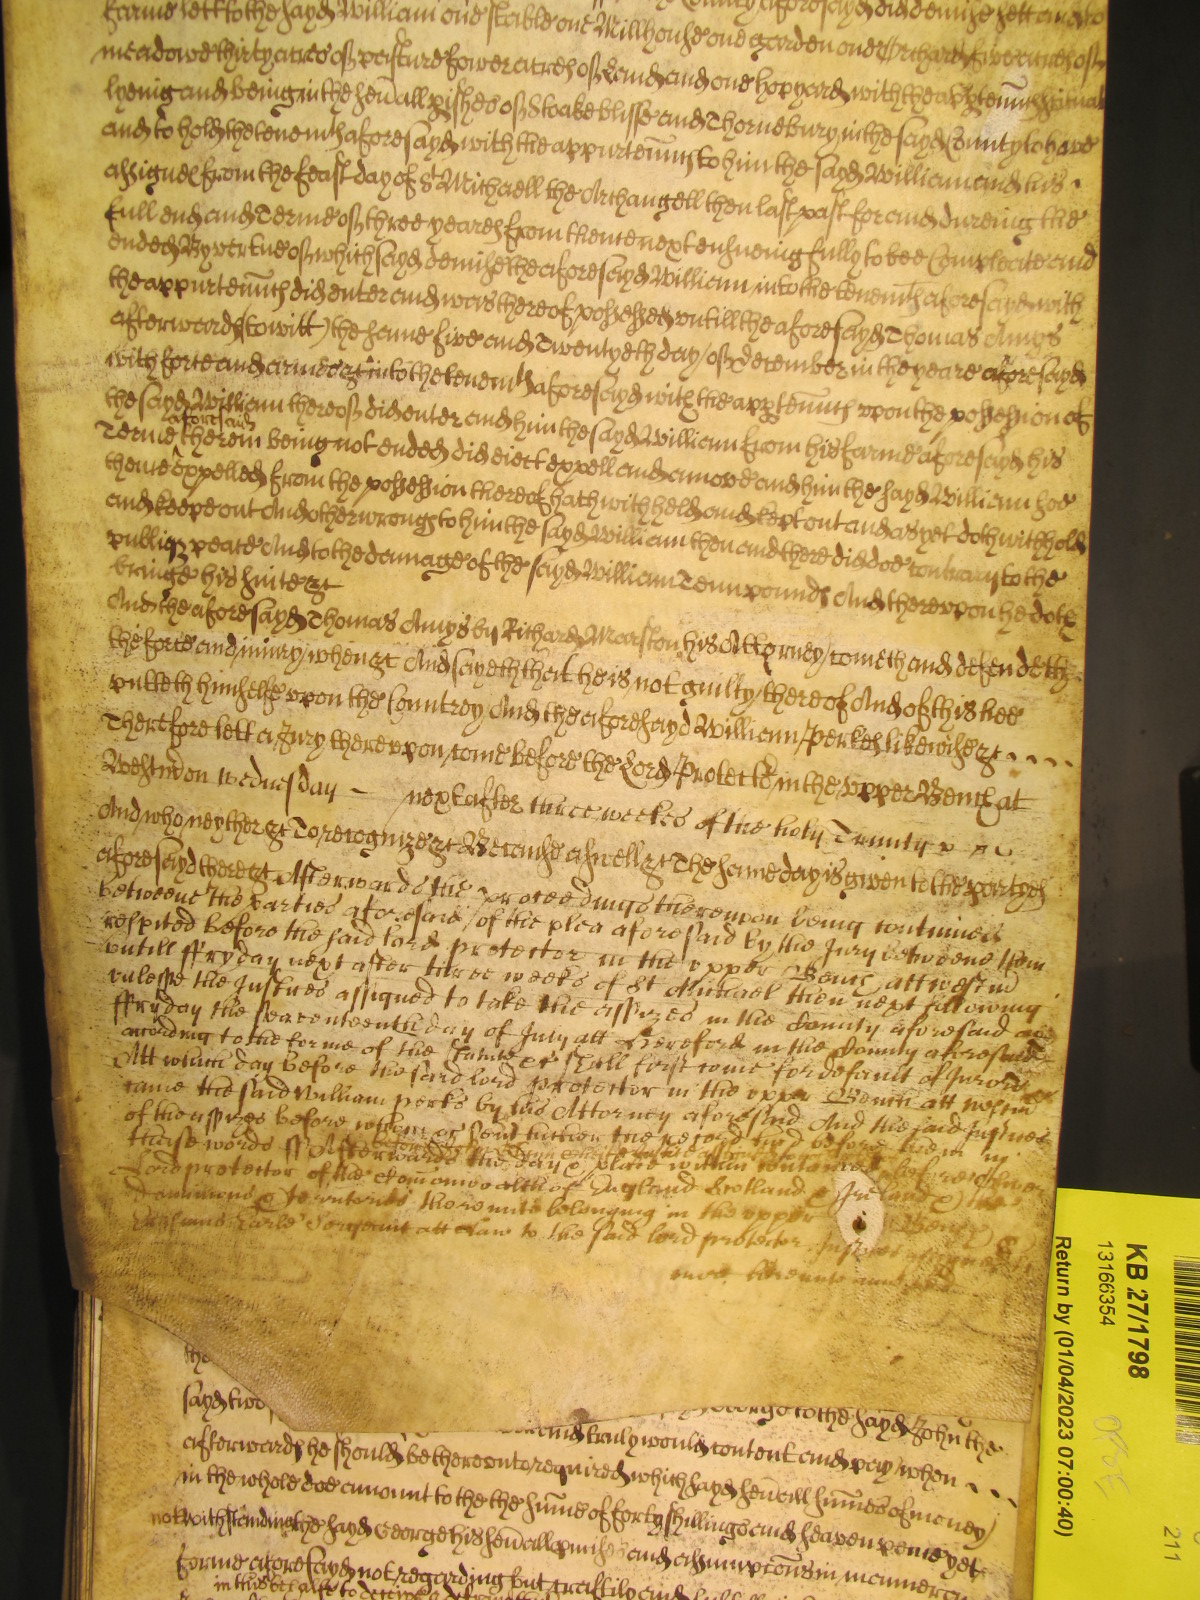 farme lett to the sayd William one stable one Millhouse one garden one Orchard five acres of
meadowe thirty acres of pasture fower acres of land and one hopyard with the apptenncs scituat
lyeing and being in the sevall pishes of Stoake blisse and Thornebury in the sayd County to have
and to hold the tenemts aforesayd with the appurtenncs to him the sayd William and his
assignes from the feast day of St Michaell the Archangell then last past for and dureing the
full end and Terme of three yeares from thence next ensueing fully to bee Compleate and
ended By vertue of which sayd demise the aforesayd William into the tenemts aforesayd with
the appurtenncs did enter and was thereof possessed untill the aforesayd Thomas Amys
afterwards (to witt) the same five and Twentyeth day of December in the yeare aforesayd
with force and armes &c into the tenemts aforesayd with the apptenncs upon the possession of
the sayd William thereof did enter and him the sayd William from his farme aforesayd his
aforesaid
Terme therein being not ended did eiect expell and amove and him the sayd William soe
thence expelled from the possession thereof hath withheld and kept out and as yet doth withhold
and keepe out And other wrongs to him the sayd William then and there did doe contrary to the
publiq peace And to the damage of the sayd William Tenn pounds And thereupon he doth
bringe his suite &c
And the aforesayd Thomas Amys by Richard Marston his Attorney cometh and defendeth
the force and iniury when &c And sayeth that he is not guilty thereof And of this hee
putteth himselfe upon the Countrey And the aforesayd William Perkes likewise &c
Therefore lett a Jury thereupon come before the Lord Protector in the upper Bench at
Westmr on wednesday next after three weekes of the holy Trinity
And who neyther &c To recognize &c Because aswell &c The same day is given to the partyes
aforesayd there &c Afterwards the proceedings thereupon being continued
betweene the parties aforesaid of the plea aforesaid by the Jury betweene them
respited before the said lord protector in the upper Bench att westmr
untill ffryday next after three weekes of St Michael then next following
unlesse the Justices assigned to take the assizes in the County aforesaid on
ffryday the seaventeenth day of July att Hereford in the County aforesaid
according to the forme of the Statute &c shall first come for default of Jurors
Att which day before the said lord protector in the upper Bench att westmr
came the said William perks by his Attorney aforesaid And the said Justices
of the assizes before whom &c sent hither the record had before them in
these words ss Afterwards the day & place within contained before Oliver
Lord protector of the Comonwealth of England Scotland & Ireland & the
dominions & territories thereunto belonging in the upper Bench &
Erasmus Earle Serjeant att Law to the said lord protector Justices assigned
more hereunto annexed
the
sayd two George to the sayd John the
and truly would content and pay when
afterwards he should be thereunto required which sayd sevall summes of money
in the whole doe amount to the the sume of forty shillings and seaven pence yet
notwithstanding the sayd George his sevall pmises and assumpcons in manner &
forme aforesayd not regarding but craftily and
in this behalfe to deceive & defraud
KB 27/1798
13166354
Return by (01/04/2023 07:00:40)
211